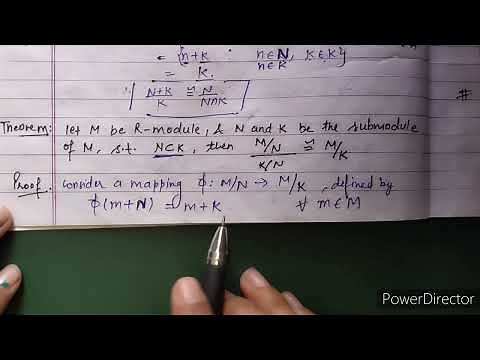 = {n+k : n∈N, k∈K}
n∈K
= K.
N+K/K ≅ N/N∩K
#
Theorem: let M be R-module, & N and K be the submodule
of M, s.t. N⊂K, then M/N / K/N ≅ M/K
Proof. Consider a mapping ϕ: M/N → M/K, defined by
ϕ(m+N) = m+K ∀ m∈M
PowerDirector